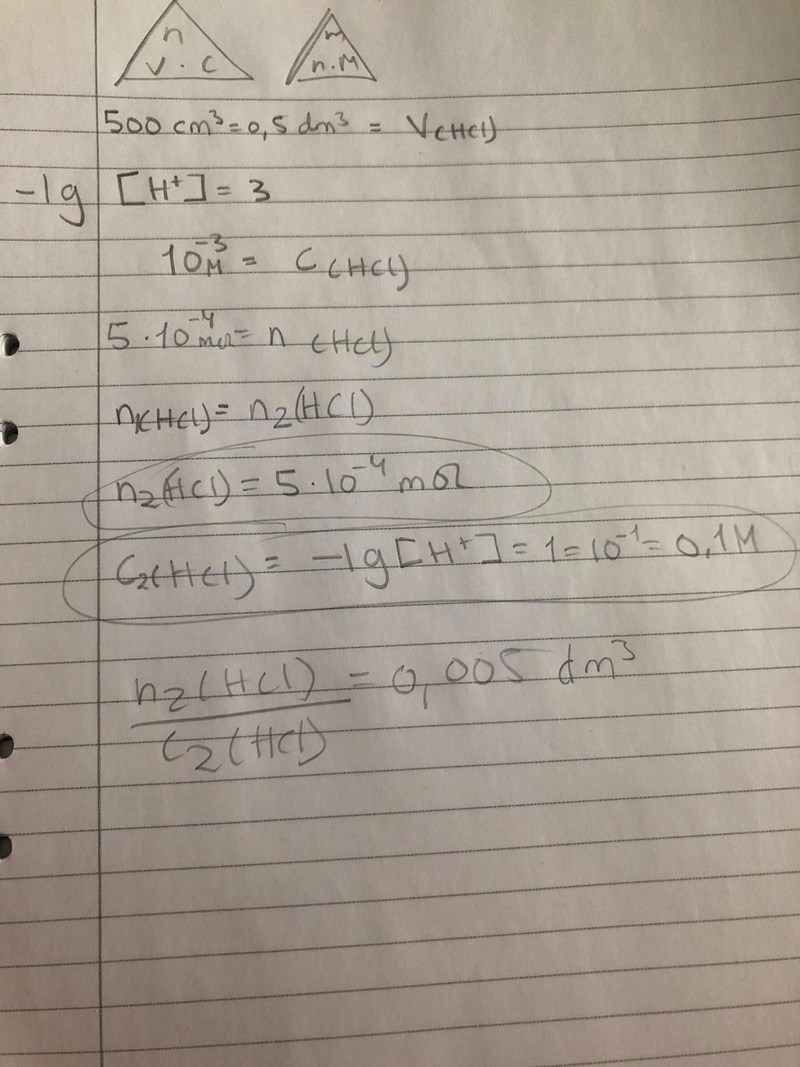 n
V · C
m
n · M
500 cm³ = 0,5 dm³ = V(HCl)
-lg [H⁺] = 3
10⁻³ M = C(HCl)
5 · 10⁻⁴ mol = n (HCl)
n(HCl) = n₂(HCl)
n₂(HCl) = 5 · 10⁻⁴ mol
C₂(HCl) = -lg [H⁺] = 1 = 10⁻¹ = 0,1 M
n₂(HCl) = 0,005 dm³
C₂(HCl)